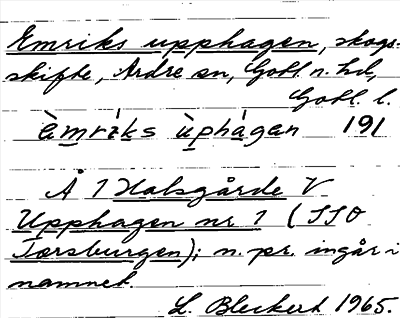 Emriks upphagen, skogs-
skifte, Ardre sn, Gotl. n. hd,
Gotl. l.
èmrìks ùphàgan 191
Å 1 Halsgårde V
Upphagen nr 1 (SSO
Torsburgen); n. pr. ingår i
namnet.
L. Bleckert 1965.